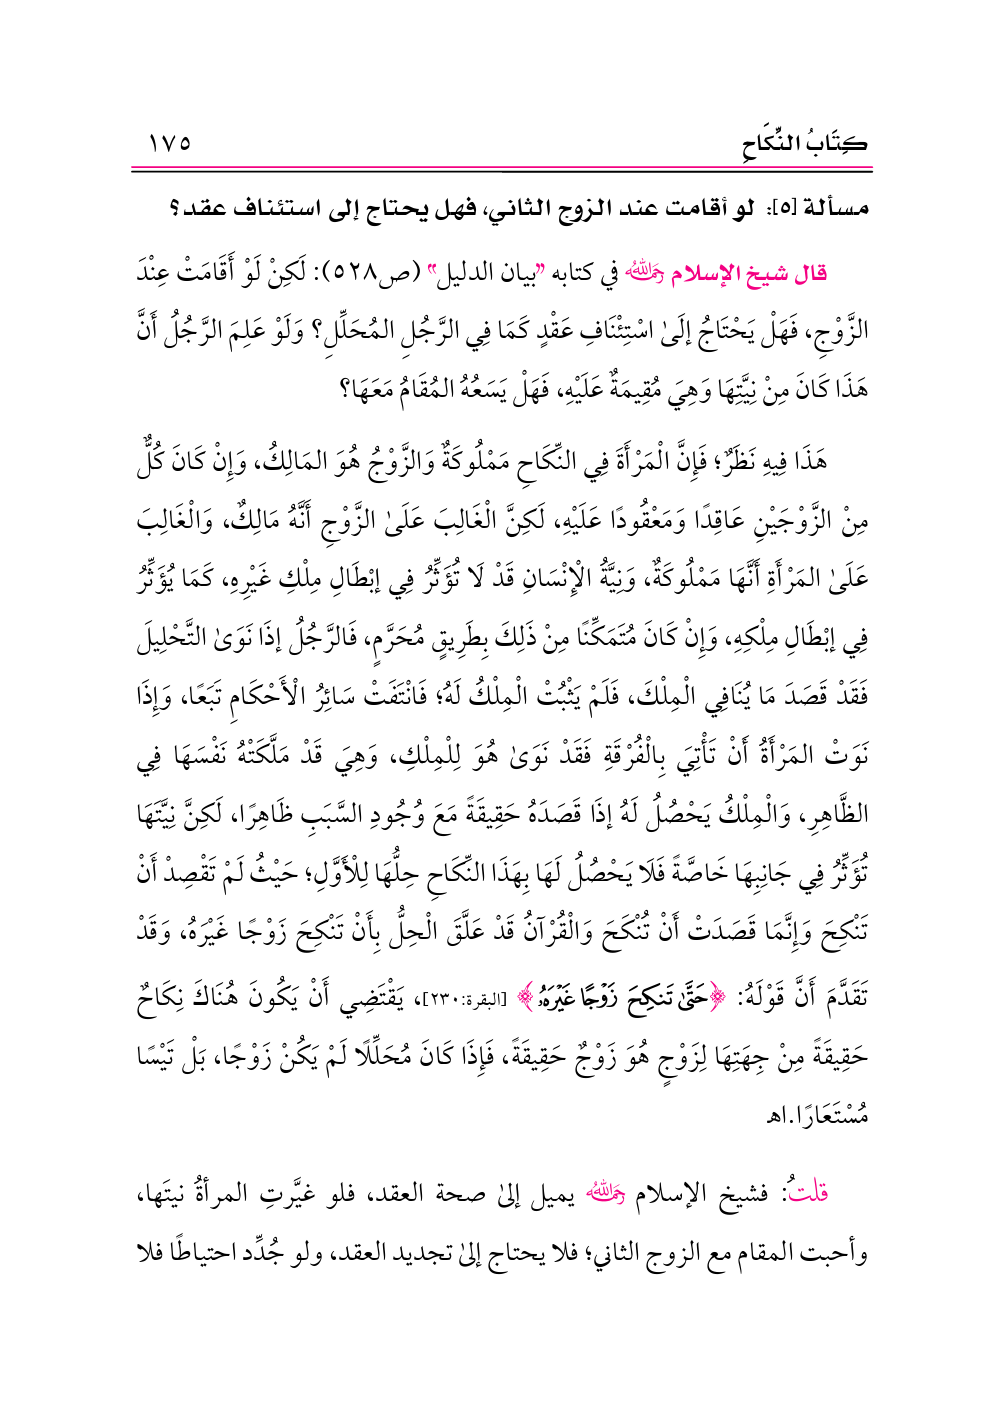 كِتَابُ النِّكَاحِ ١٧٥
مسألة [٥]: لو أقامت عند الزوج الثاني، فهل يحتاج إلى استئناف عقد؟
قال شيخ الإسلام رحمه الله في كتابه "بيان الدليل" (ص٥٢٨): لَكِنْ لَوْ أَقَامَتْ عِنْدَ
الزَّوْجِ، فَهَلْ يَحْتَاجُ إلَىٰ اسْتِئْنَافِ عَقْدٍ كَمَا فِي الرَّجُلِ المُحَلِّلِ؟ وَلَوْ عَلِمَ الرَّجُلُ أَنَّ
هَذَا كَانَ مِنْ نِيَّتِهَا وَهِيَ مُقِيمَةٌ عَلَيْهِ، فَهَلْ يَسَعُهُ المُقَامُ مَعَهَا؟
هَذَا فِيهِ نَظَرٌ؛ فَإِنَّ الْمَرْأَةَ فِي النِّكَاحِ مَمْلُوكَةٌ وَالزَّوْجُ هُوَ المَالِكُ، وَإِنْ كَانَ كُلٌّ
مِنْ الزَّوْجَيْنِ عَاقِدًا وَمَعْقُودًا عَلَيْهِ، لَكِنَّ الْغَالِبَ عَلَىٰ الزَّوْجِ أَنَّهُ مَالِكٌ، وَالْغَالِبَ
عَلَىٰ المَرْأَةِ أَنَّهَا مَمْلُوكَةٌ، وَنِيَّةُ الْإِنْسَانِ قَدْ لَا تُؤَثِّرُ فِي إبْطَالِ مِلْكِ غَيْرِهِ، كَمَا يُؤَثِّرُ
فِي إبْطَالِ مِلْكِهِ، وَإِنْ كَانَ مُتَمَكِّنًا مِنْ ذَلِكَ بِطَرِيقٍ مُحَرَّمٍ، فَالرَّجُلُ إذَا نَوَىٰ التَّحْلِيلَ
فَقَدْ قَصَدَ مَا يُنَافِي الْمِلْكَ، فَلَمْ يَثْبُتْ الْمِلْكُ لَهُ؛ فَانْتَفَتْ سَائِرُ الْأَحْكَامِ تَبَعًا، وَإِذَا
نَوَتْ المَرْأَةُ أَنْ تَأْتِيَ بِالْفُرْقَةِ فَقَدْ نَوَىٰ هُوَ لِلْمِلْكِ، وَهِيَ قَدْ مَلَّكَتْهُ نَفْسَهَا فِي
الظَّاهِرِ، وَالْمِلْكُ يَحْصُلُ لَهُ إذَا قَصَدَهُ حَقِيقَةً مَعَ وُجُودِ السَّبَبِ ظَاهِرًا، لَكِنَّ نِيَّتَهَا
تُؤَثِّرُ فِي جَانِبِهَا خَاصَّةً فَلَا يَحْصُلُ لَهَا بِهَذَا النِّكَاحِ حِلُّهَا لِلْأَوَّلِ؛ حَيْثُ لَمْ تَقْصِدْ أَنْ
تَنْكِحَ وَإِنَّمَا قَصَدَتْ أَنْ تُنْكَحَ وَالْقُرْآنُ قَدْ عَلَّقَ الْحِلَّ بِأَنْ تَنْكِحَ زَوْجًا غَيْرَهُ، وَقَدْ
تَقَدَّمَ أَنَّ قَوْلَهُ: ﴿حَتَّىٰ تَنكِحَ زَوْجًا غَيْرَهُۥ﴾ [البقرة:٢٣٠]، يَقْتَضِي أَنْ يَكُونَ هُنَاكَ نِكَاحٌ
حَقِيقَةً مِنْ جِهَتِهَا لِزَوْجٍ هُوَ زَوْجٌ حَقِيقَةً، فَإِذَا كَانَ مُحَلِّلًا لَمْ يَكُنْ زَوْجًا، بَلْ تَيْسًا
مُسْتَعَارًا.اهـ
قلتُ: فشيخ الإسلام رحمه الله يميل إلىٰ صحة العقد، فلو غيَّرتِ المرأةُ نيتَها،
وأحبت المقام مع الزوج الثاني؛ فلا يحتاج إلىٰ تجديد العقد، ولو جُدِّد احتياطًا فلا